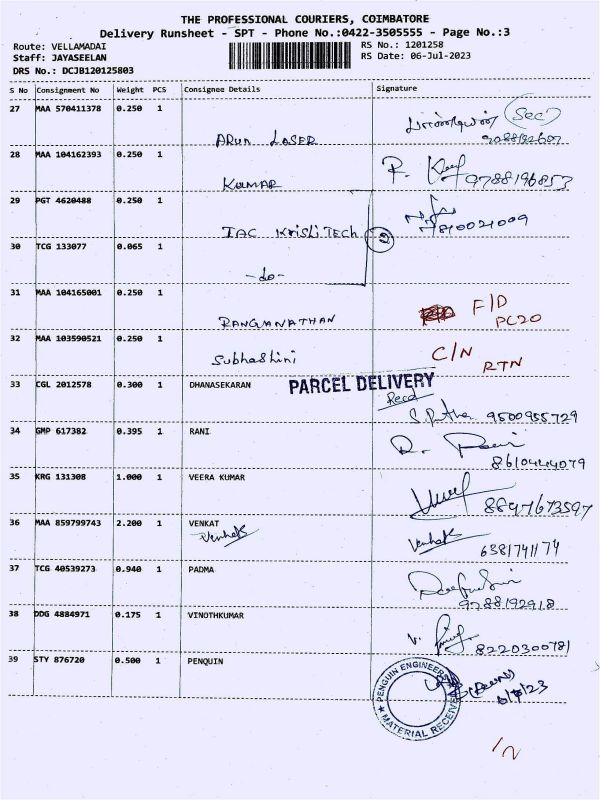 THE PROFESSIONAL COURIERS, COIMBATORE
Delivery Runsheet - SPT - Phone No.:0422-3505555 - Page No.:3
Route: VELLAMADAI
RS No.: 1201258
Staff: JAYASEELAN
RS Date: 06-Jul-2023
DRS No.: DCJB120125803
S No Consignment No Weight PCS Consignee Details Signature
27 MAA 570411378 0.250 1
(Sec)
ARUN LASER
28 MAA 104162393 0.250 1
KUMAR 9788196853
29 PGT 4620488 0.250 1
IAC KrisliTECH
30 TCG 133077 0.065 1 2
-do-
31 MAA 104165001 0.250 1
RANGANATHAN F/D
PC20
32 MAA 103590521 0.250 1
Subhashini C/N RTN
33 CGL 2012578 0.300 1 DHANASEKARAN
PARCEL DELIVERY
Recd
9500955729
34 GMP 617382 0.395 1 RANI
8610444079
35 KRG 131308 1.000 1 VEERA KUMAR
8847673597
36 MAA 859799743 2.200 1 VENKAT
Venkat Venkat 6381741174
37 TCG 40539273 0.940 1 PADMA
9788192918
38 DDG 4884971 0.175 1 VINOTHKUMAR
8220300781
39 STY 876720 0.500 1 PENQUIN
PENGUIN ENGINEER
MATERIAL RECEIVE